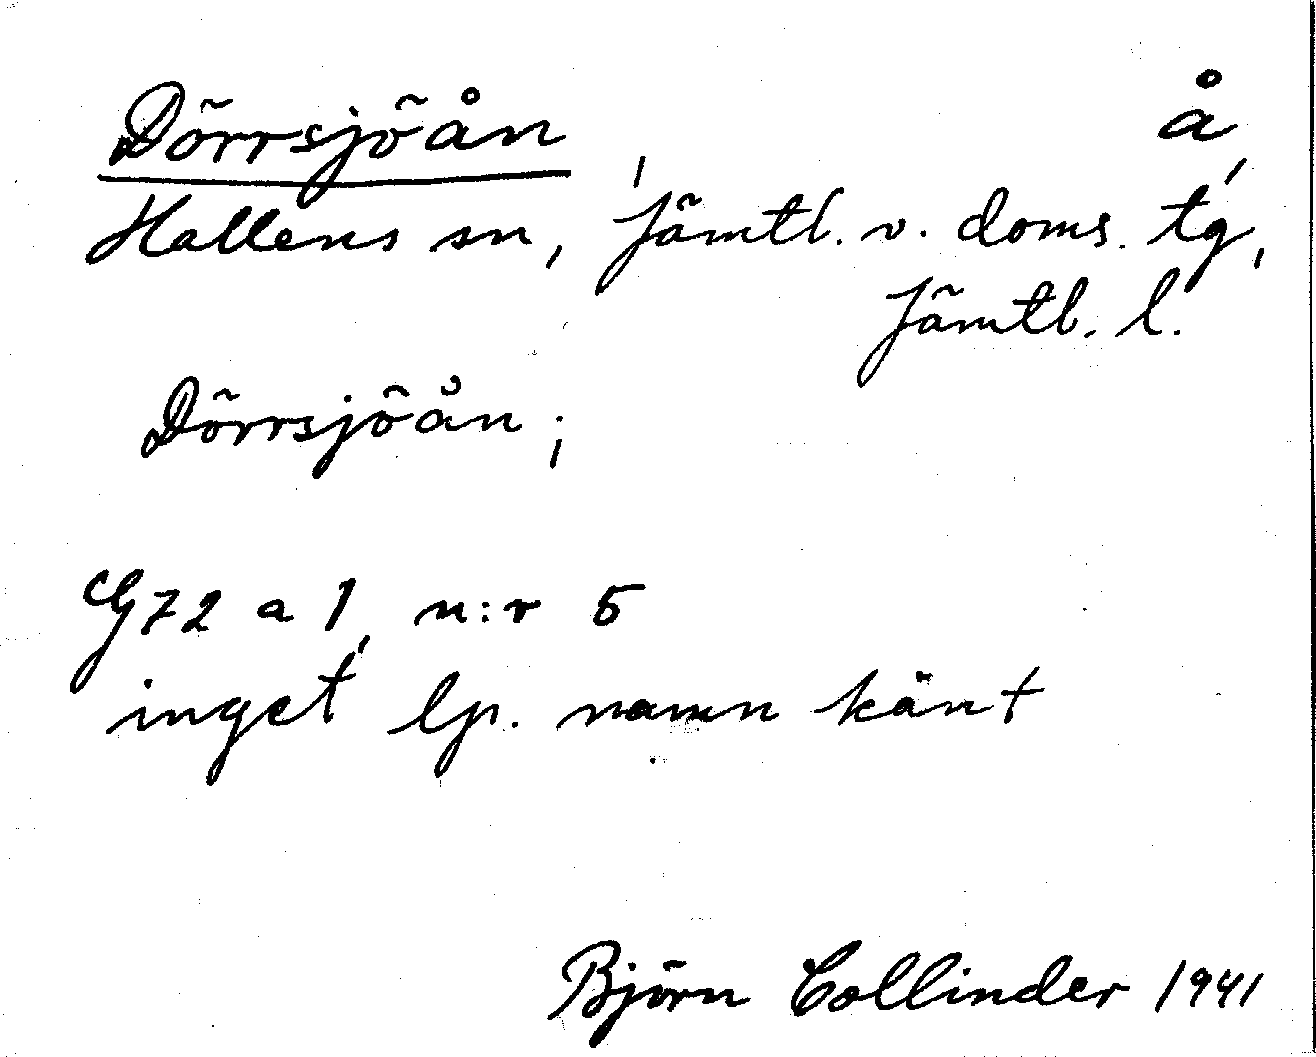 Dörrsjöån, å,
Hallens sn, Jämtl. v. doms. tg,
Jämtl. l.
Dörrsjöån;
G 72 a 1, n:r 5
inget lp. namn känt
Björn Collinder 1941